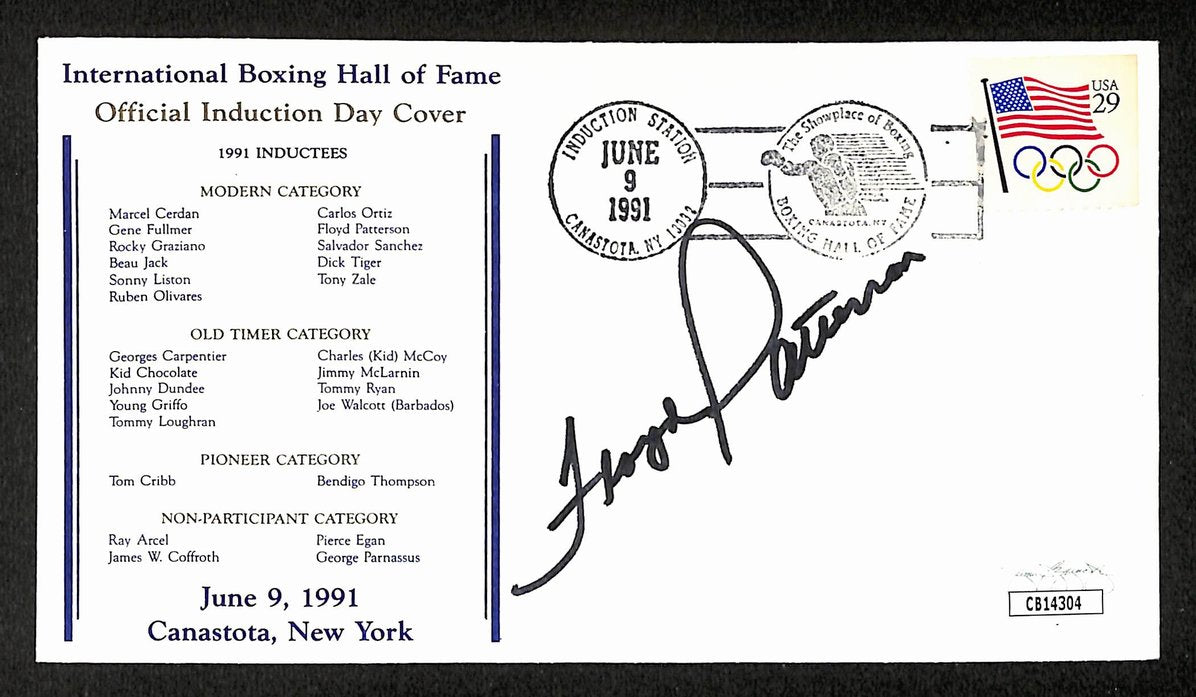 International Boxing Hall of Fame
Official Induction Day Cover
1991 INDUCTEES
MODERN CATEGORY
Marcel Cerdan
Gene Fullmer
Rocky Graziano
Beau Jack
Sonny Liston
Ruben Olivares
Carlos Ortiz
Floyd Patterson
Salvador Sanchez
Dick Tiger
Tony Zale
OLD TIMER CATEGORY
Georges Carpentier
Kid Chocolate
Johnny Dundee
Young Griffo
Tommy Loughran
Charles (Kid) McCoy
Jimmy McLarnin
Tommy Ryan
Joe Walcott (Barbados)
PIONEER CATEGORY
Tom Cribb
Bendigo Thompson
NON-PARTICIPANT CATEGORY
Ray Arcel
James W. Coffroth
Pierce Egan
George Parnassus
June 9, 1991
Canastota, New York
INDUCTION STATION
JUNE
9
1991
CANASTOTA, NY
The Showplace of Boxing
CANASTOTA, NY
BOXING HALL OF FAME
USA
29
Floyd Patterson
CB14304